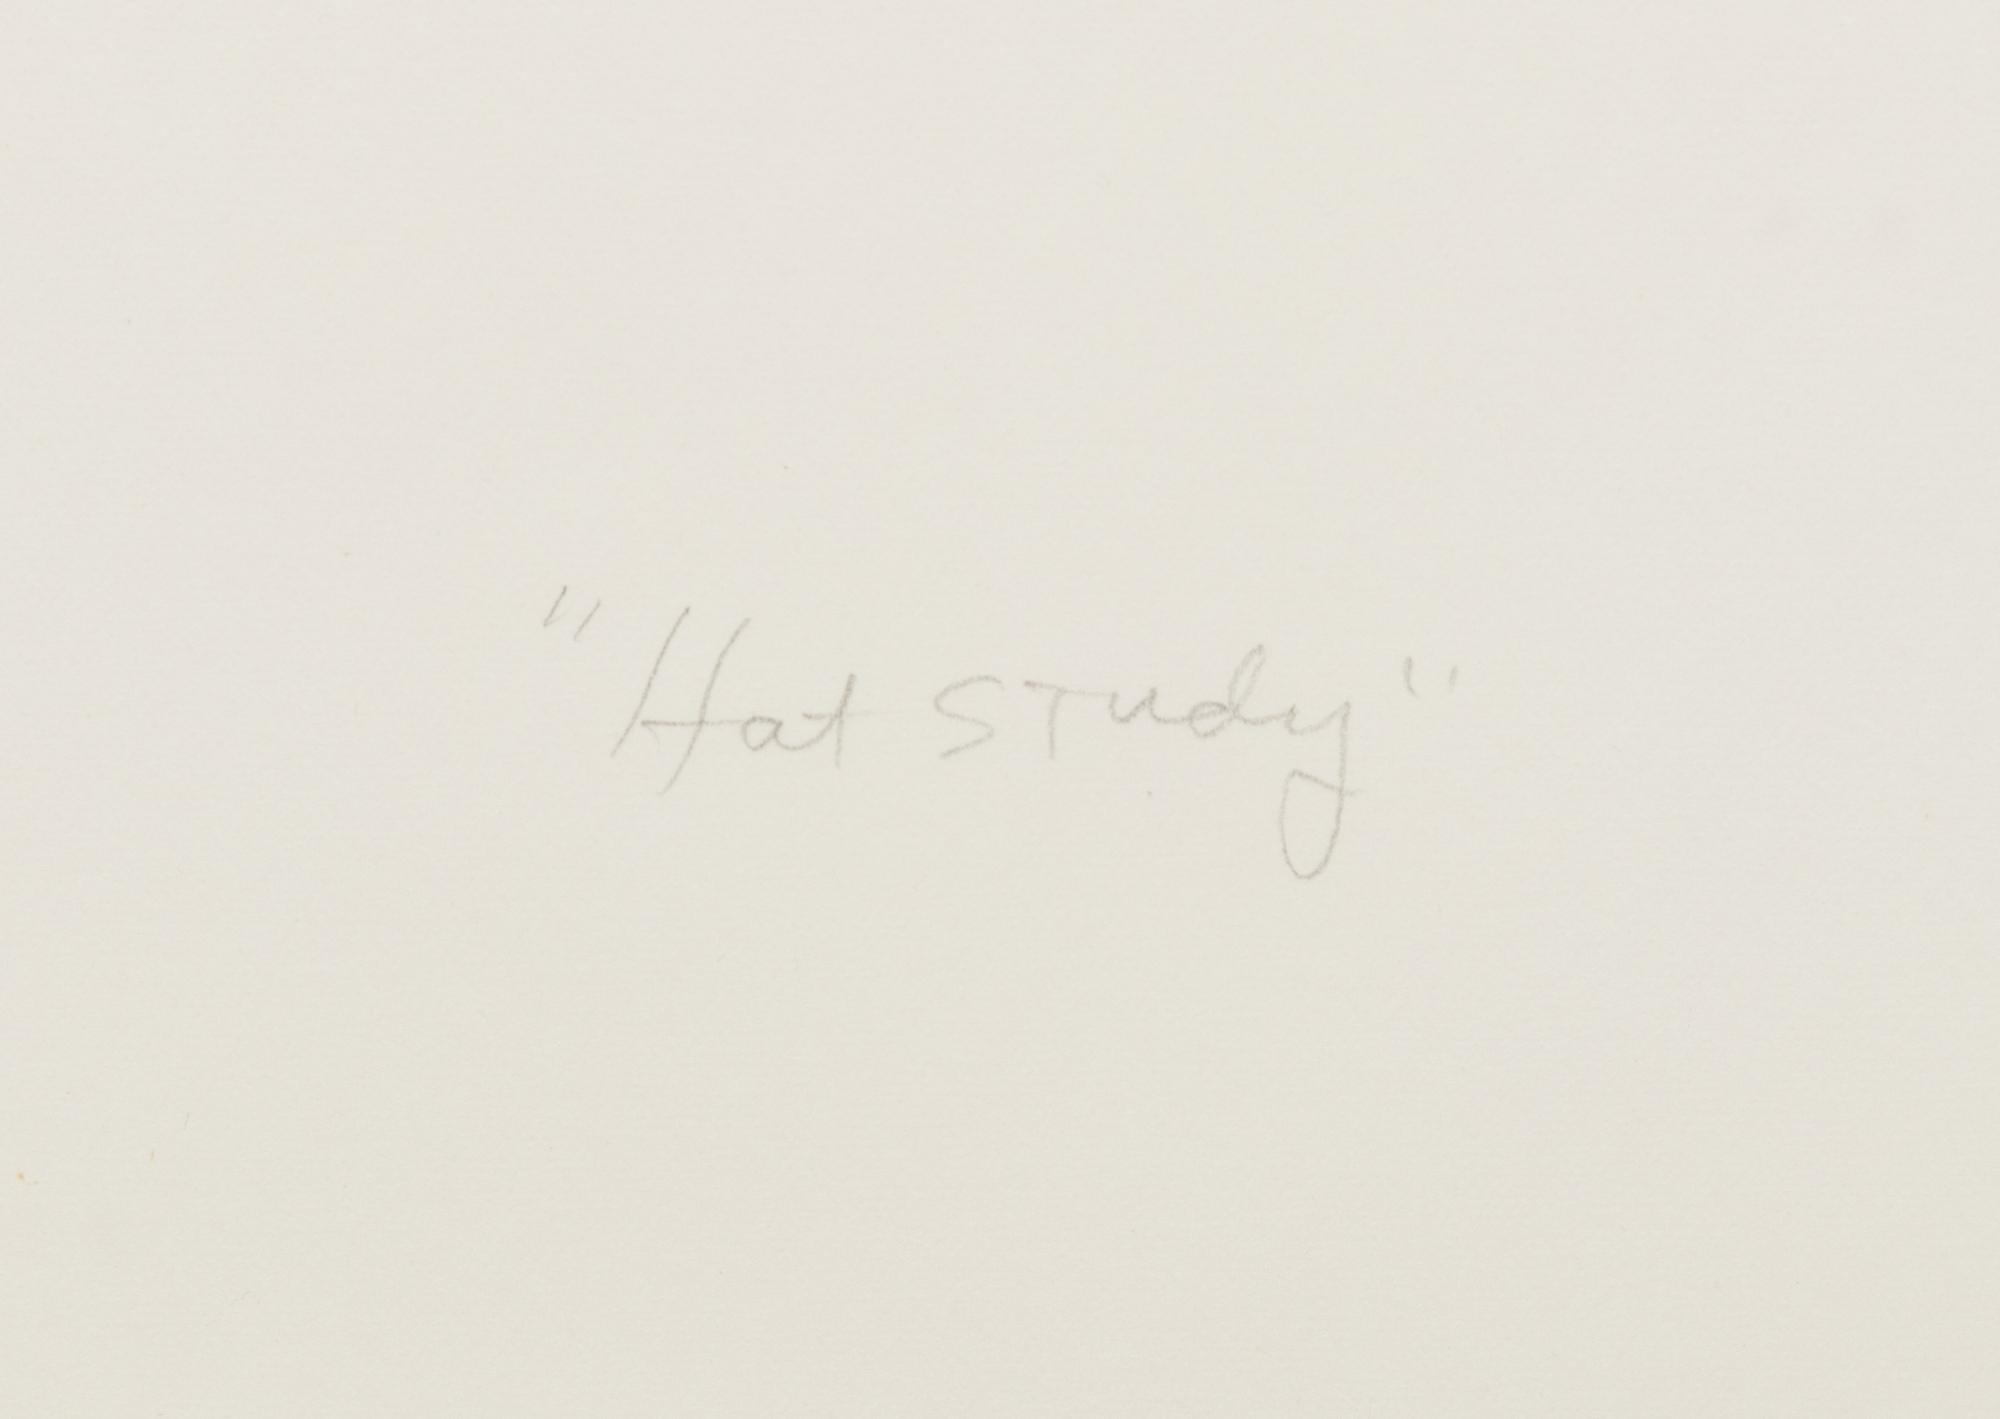 "Hat STudy"